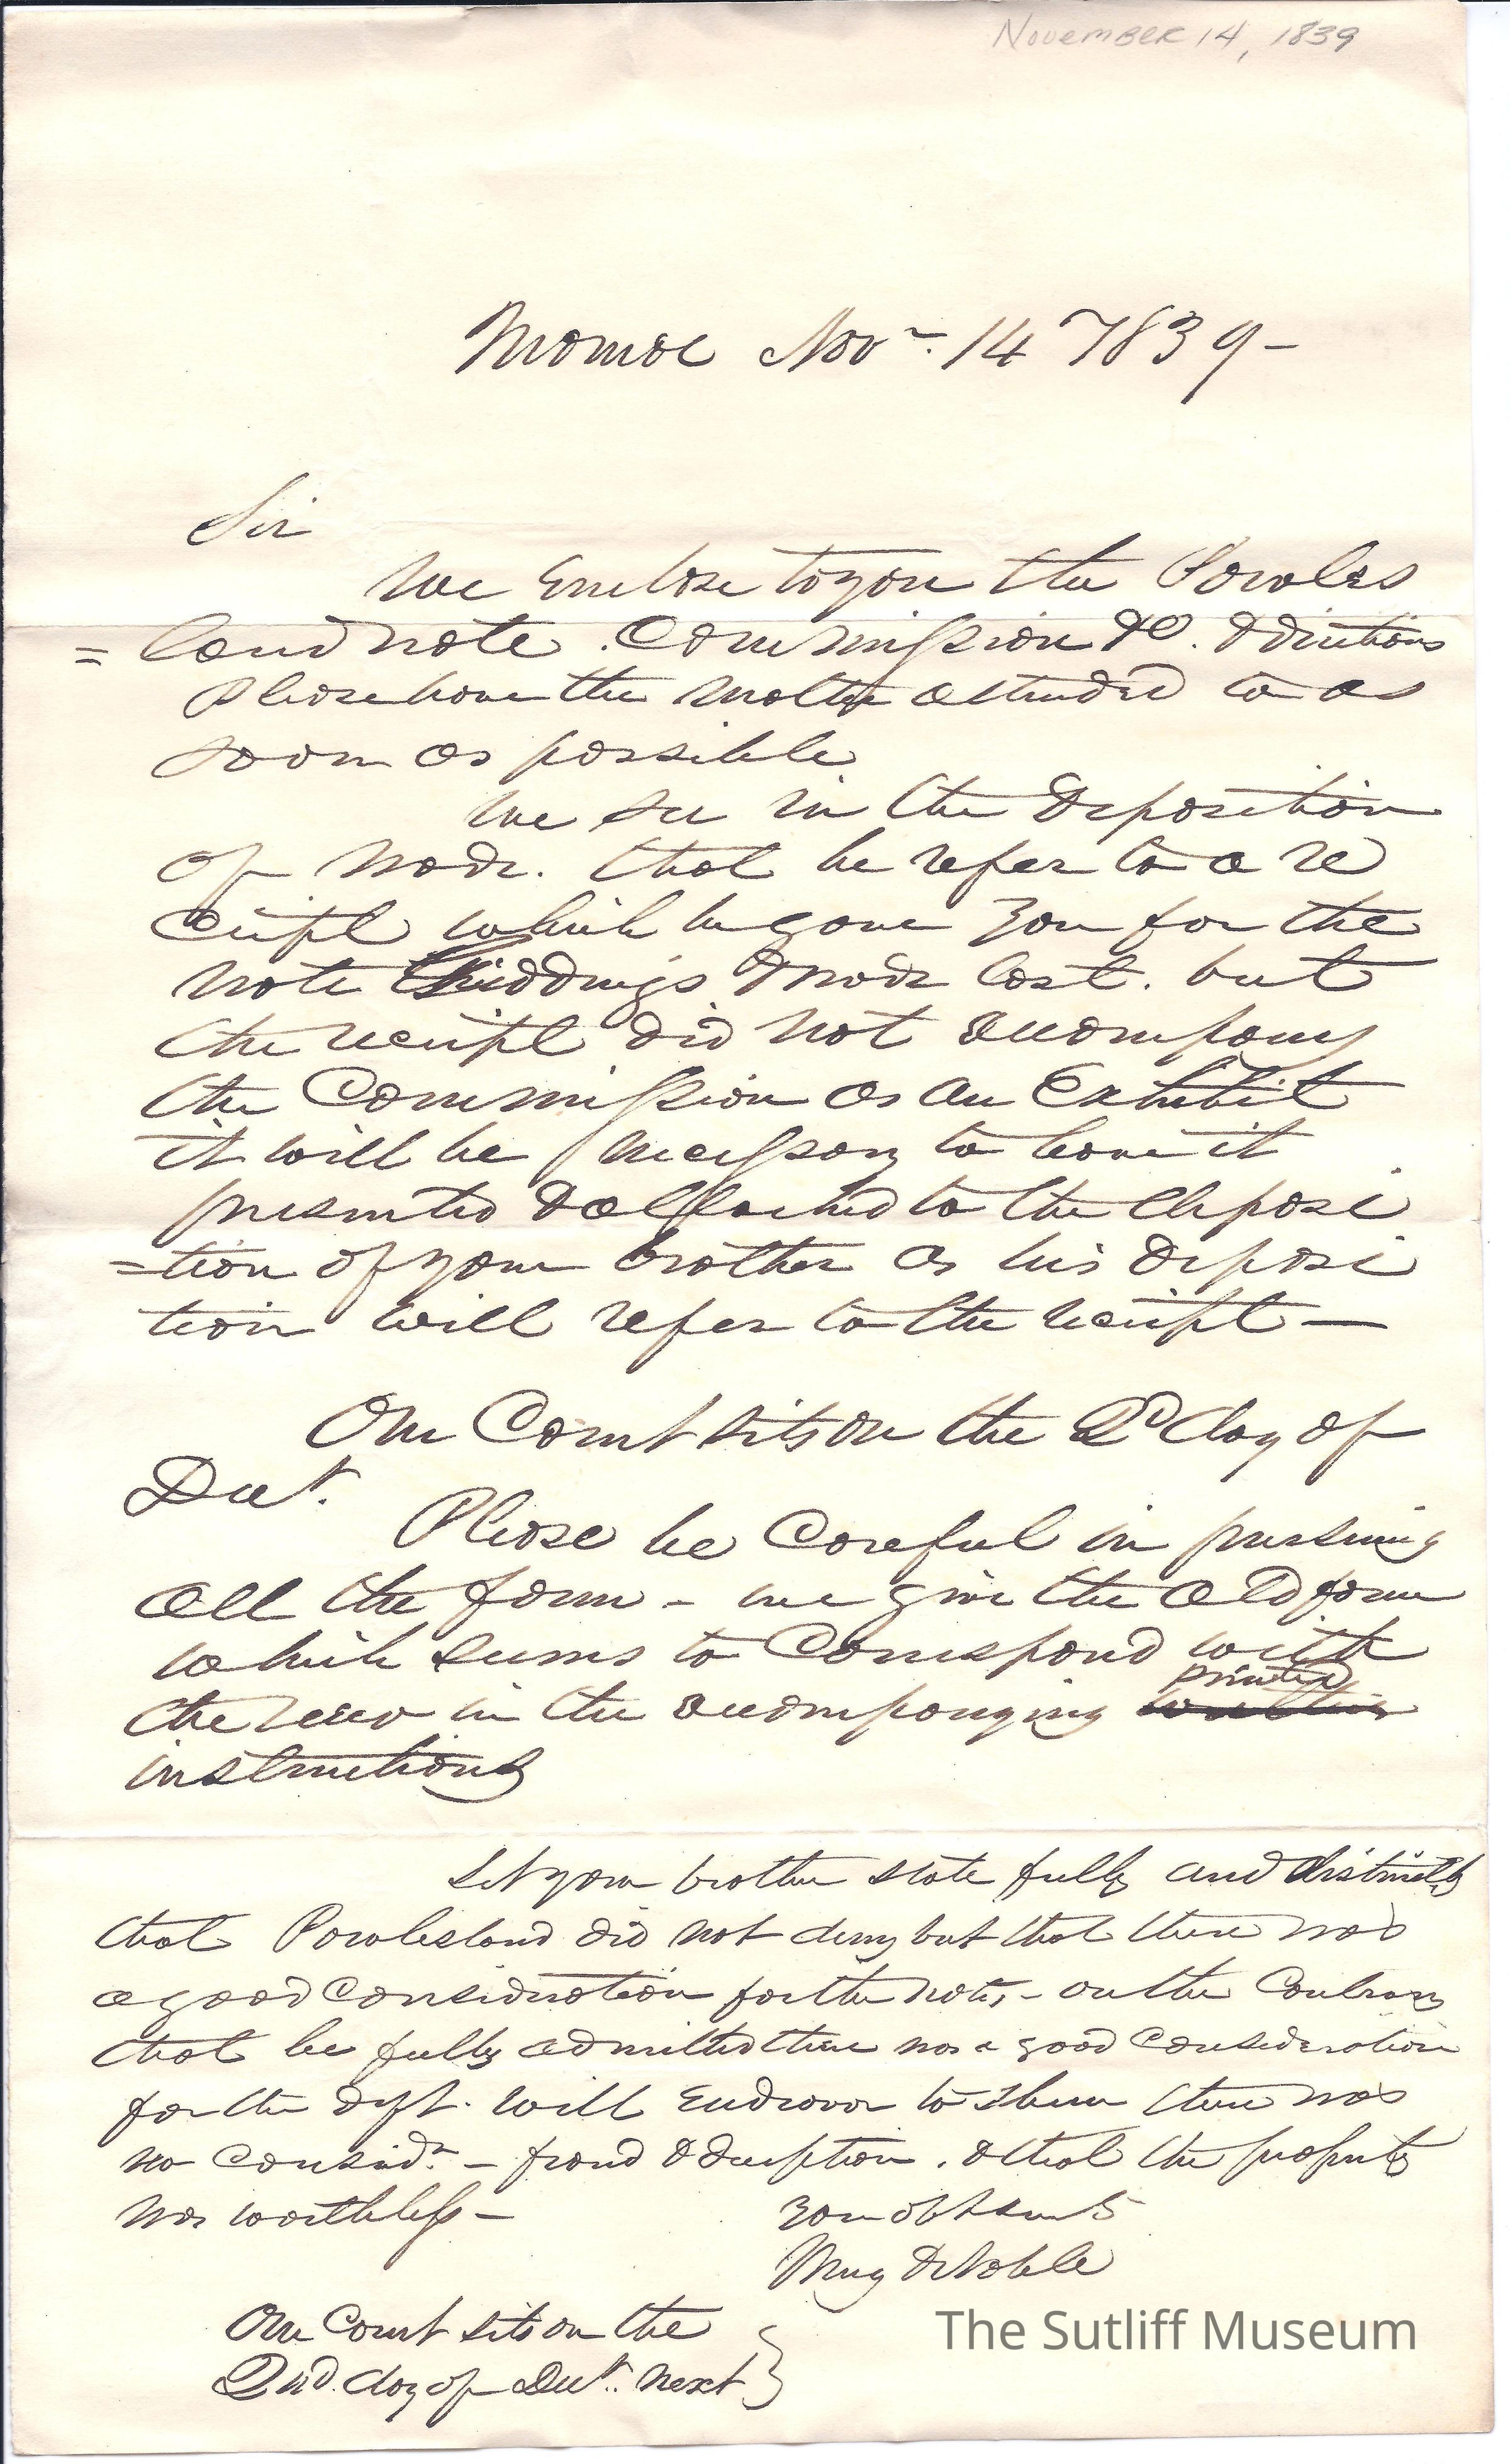 November 14, 1839
Monroe Nov r. 14 1839 -
Sir
We Enclose to you the Powles
= land note . Commission &c. & directions
Please have the matter attended to as
soon as possible
We see in the deposition
of Wade. that he refer to a re
ceipt which he gave you for the
note Giddings & Wade Cost. but
the receipt did not accompany
the Commission as an Exhibit
it will be necessary to have it
presented & attached to the deposi
=tion of your brother as his deposi
tion will refer to the receipt —
Our Court sits on the 2d day of
Decr.
Please be Careful in pursuing
all the form - we give the old form
which seems to Correspond with
printed
the new in the accompanying written
instructions
Let your brother state fully and distinctly
that Powlesland did not deny but that there was
a good Consideration for the note, - on the Contrary
that he fully admitted there was a good Consideration
for the deft. will Endeavor to Shew there was
no considn. - fraud & deception . & that the property
was worthless -
Your obt servts
& Noble
Our Court sits on the
2nd. day of Decr. next }
The Sutliff Museum